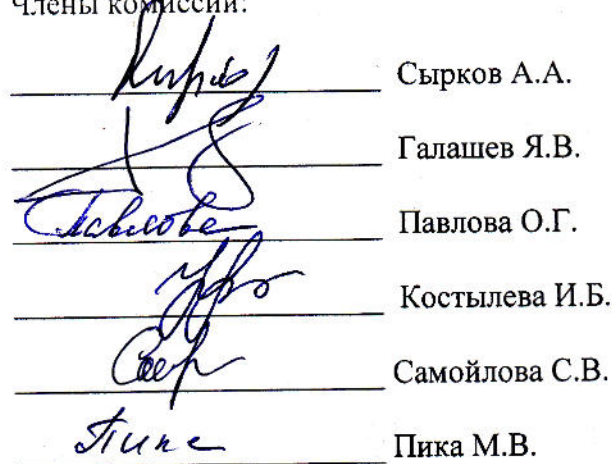 Члены комиссии:
Сырков А.А.
Галашев Я.В.
Павлова Павлова О.Г.
Костылева И.Б.
Самойлова С.В.
Пика Пика М.В.